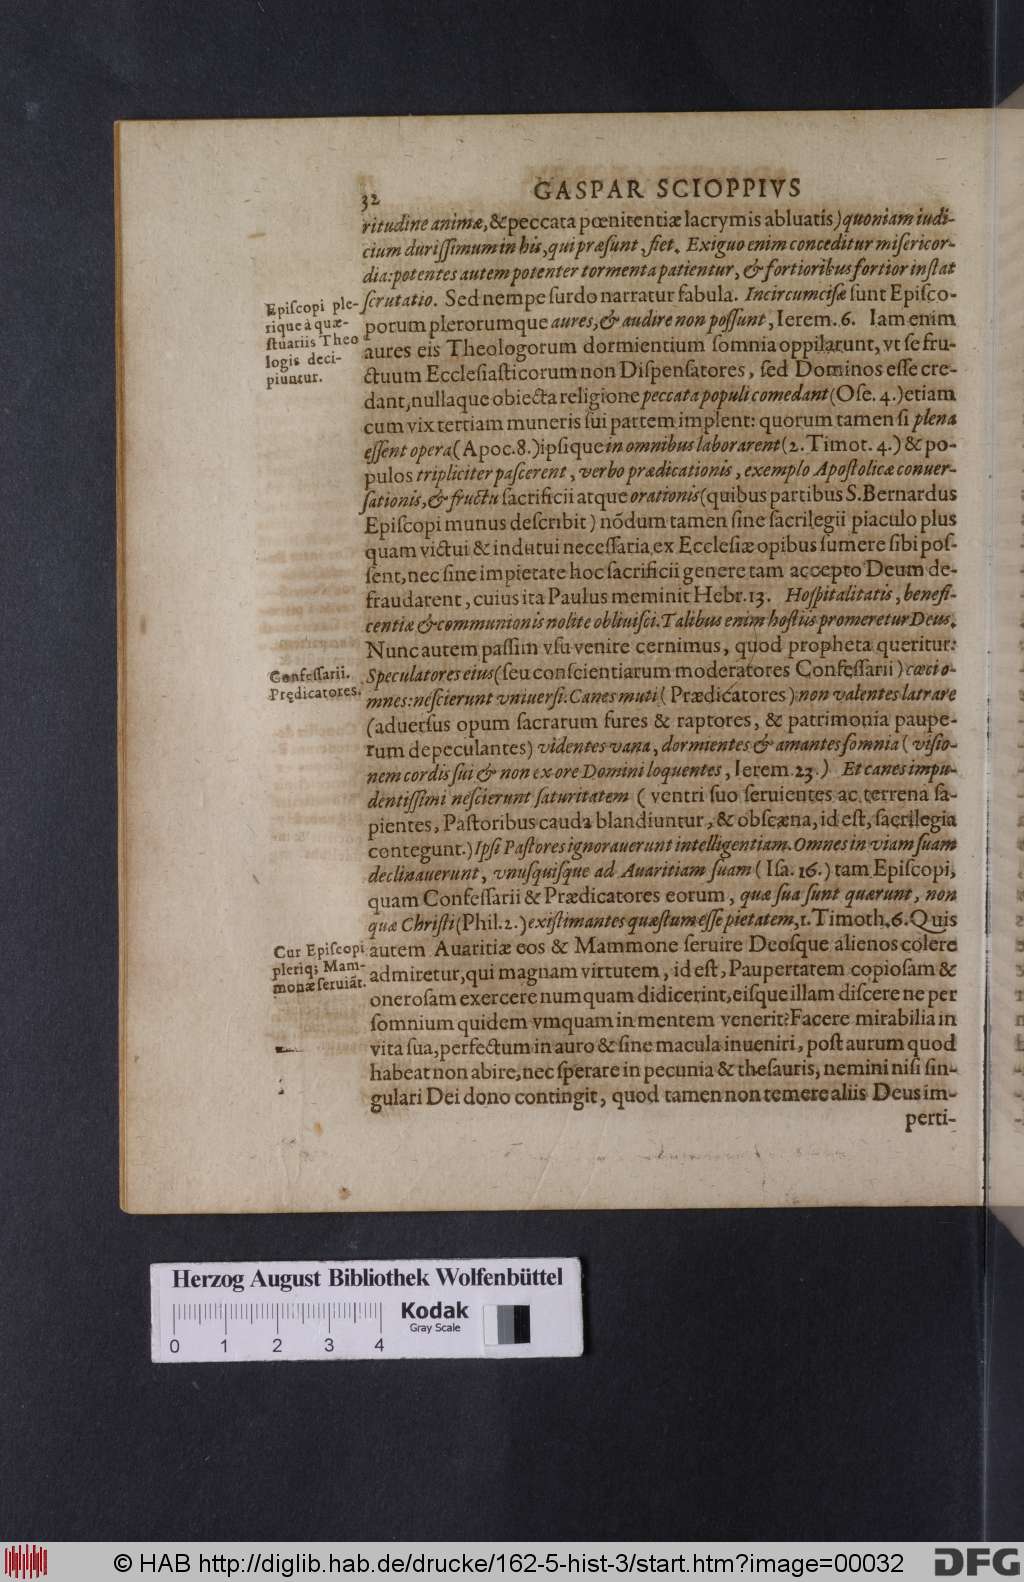 32
GASPAR SCIOPPIVS
ritudine animæ, & peccata pœnitentiæ lacrymis abluatis) quoniam iudi-
cium durissimum in his, qui præsunt, fiet. Exiguo enim conceditur misericor-
dia: potentes autem potenter tormenta patientur, & fortioribus fortior instat
scrutatio. Sed nempe surdo narratur fabula. Incircumcisæ sunt Episco-
porum plerorumque aures, & audire non possunt, Ierem. 6. Iam enim
aures eis Theologorum dormientium somnia oppilarunt, vt se fru-
ctuum Ecclesiasticorum non Dispensatores, sed Dominos esse cre-
dant, nullaque obiecta religione peccata populi comedant (Ose. 4.) etiam
cum vix tertiam muneris sui partem implent: quorum tamen si plena
essent opera (Apoc. 8.) ipsique in omnibus laborarent (2. Timot. 4.) & po-
pulos tripliciter pascerent, verbo prædicationis, exemplo Apostolicæ conuer-
sationis, & fructu sacrificii atque orationis (quibus partibus S. Bernardus
Episcopi munus describit) nōdum tamen sine sacrilegii piaculo plus
quam victui & indutui necessaria ex Ecclesiæ opibus sumere sibi pos-
sent, nec sine impietate hoc sacrificii genere tam accepto Deum de-
fraudarent, cuius ita Paulus meminit Hebr. 13. Hospitalitatis, benefi-
centiæ & communionis nolite obliuisci. Talibus enim hostiis promeretur Deus.
Nunc autem passim vsu venire cernimus, quod propheta queritur:
Speculatores eius (seu conscientiarum moderatores Confessarii) cæci o-
mnes: nescierunt vniuersi. Canes muti (Prædicatores) non valentes latrare
(aduersus opum sacrarum fures & raptores, & patrimonia paupe-
rum depeculantes) videntes vana, dormientes & amantes somnia (visio-
nem cordis sui & non ex ore Domini loquentes, Ierem. 23.) Et canes impu-
dentissimi nescierunt saturitatem (ventri suo seruientes ac terrena sa-
pientes, Pastoribus cauda blandiuntur, & obscæna, id est, sacrilegia
contegunt.) Ipsi Pastores ignorauerunt intelligentiam. Omnes in viam suam
declinauerunt, vnusquisque ad Auaritiam suam (Isa. 16.) tam Episcopi,
quam Confessarii & Prædicatores eorum, quæ sua sunt quærunt, non
quæ Christi (Phil. 2.) existimantes quæstum esse pietatem, 1. Timoth. 6. Quis
autem Auaritiæ eos & Mammonæ seruire Deosque alienos colere
admiretur, qui magnam virtutem, id est, Paupertatem copiosam &
onerosam exercere numquam didicerint, eisque illam discere ne per
somnium quidem vmquam in mentem venerit? Facere mirabilia in
vita sua, perfectum in auro & sine macula inueniri, post aurum quod
habeat non abire, nec sperare in pecunia & thesauris, nemini nisi sin-
gulari Dei dono contingit, quod tamen non temere aliis Deus im-
perti-
Episcopi ple-
rique à quæ-
stuariis Theo
logis deci-
piuntur.
Confessarii.
Prędicatores.
Cur Episcopi
pleriq; Mam-
monæ seruiāt.
Herzog August Bibliothek Wolfenbüttel
Kodak
Gray Scale
0 1 2 3 4
© HAB http://diglib.hab.de/drucke/162-5-hist-3/start.htm?image=00032
DFG